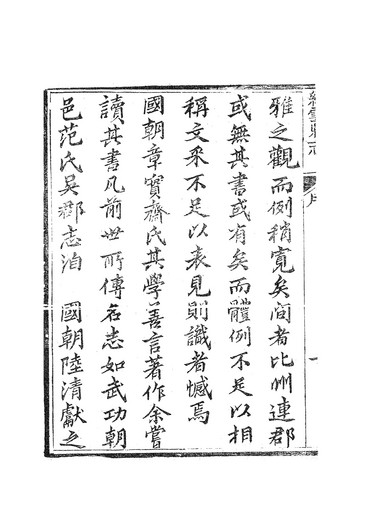 雅之觀而例稍寬矣間者比州連郡
或無其書或有矣而體例不足以相
稱文采不足以表見則識者憾焉
國朝章實齋氏其學善言著作余嘗
讀其書凡前世所傳名志如武功朝
邑范氏吳郡志洎 國朝陸清獻之